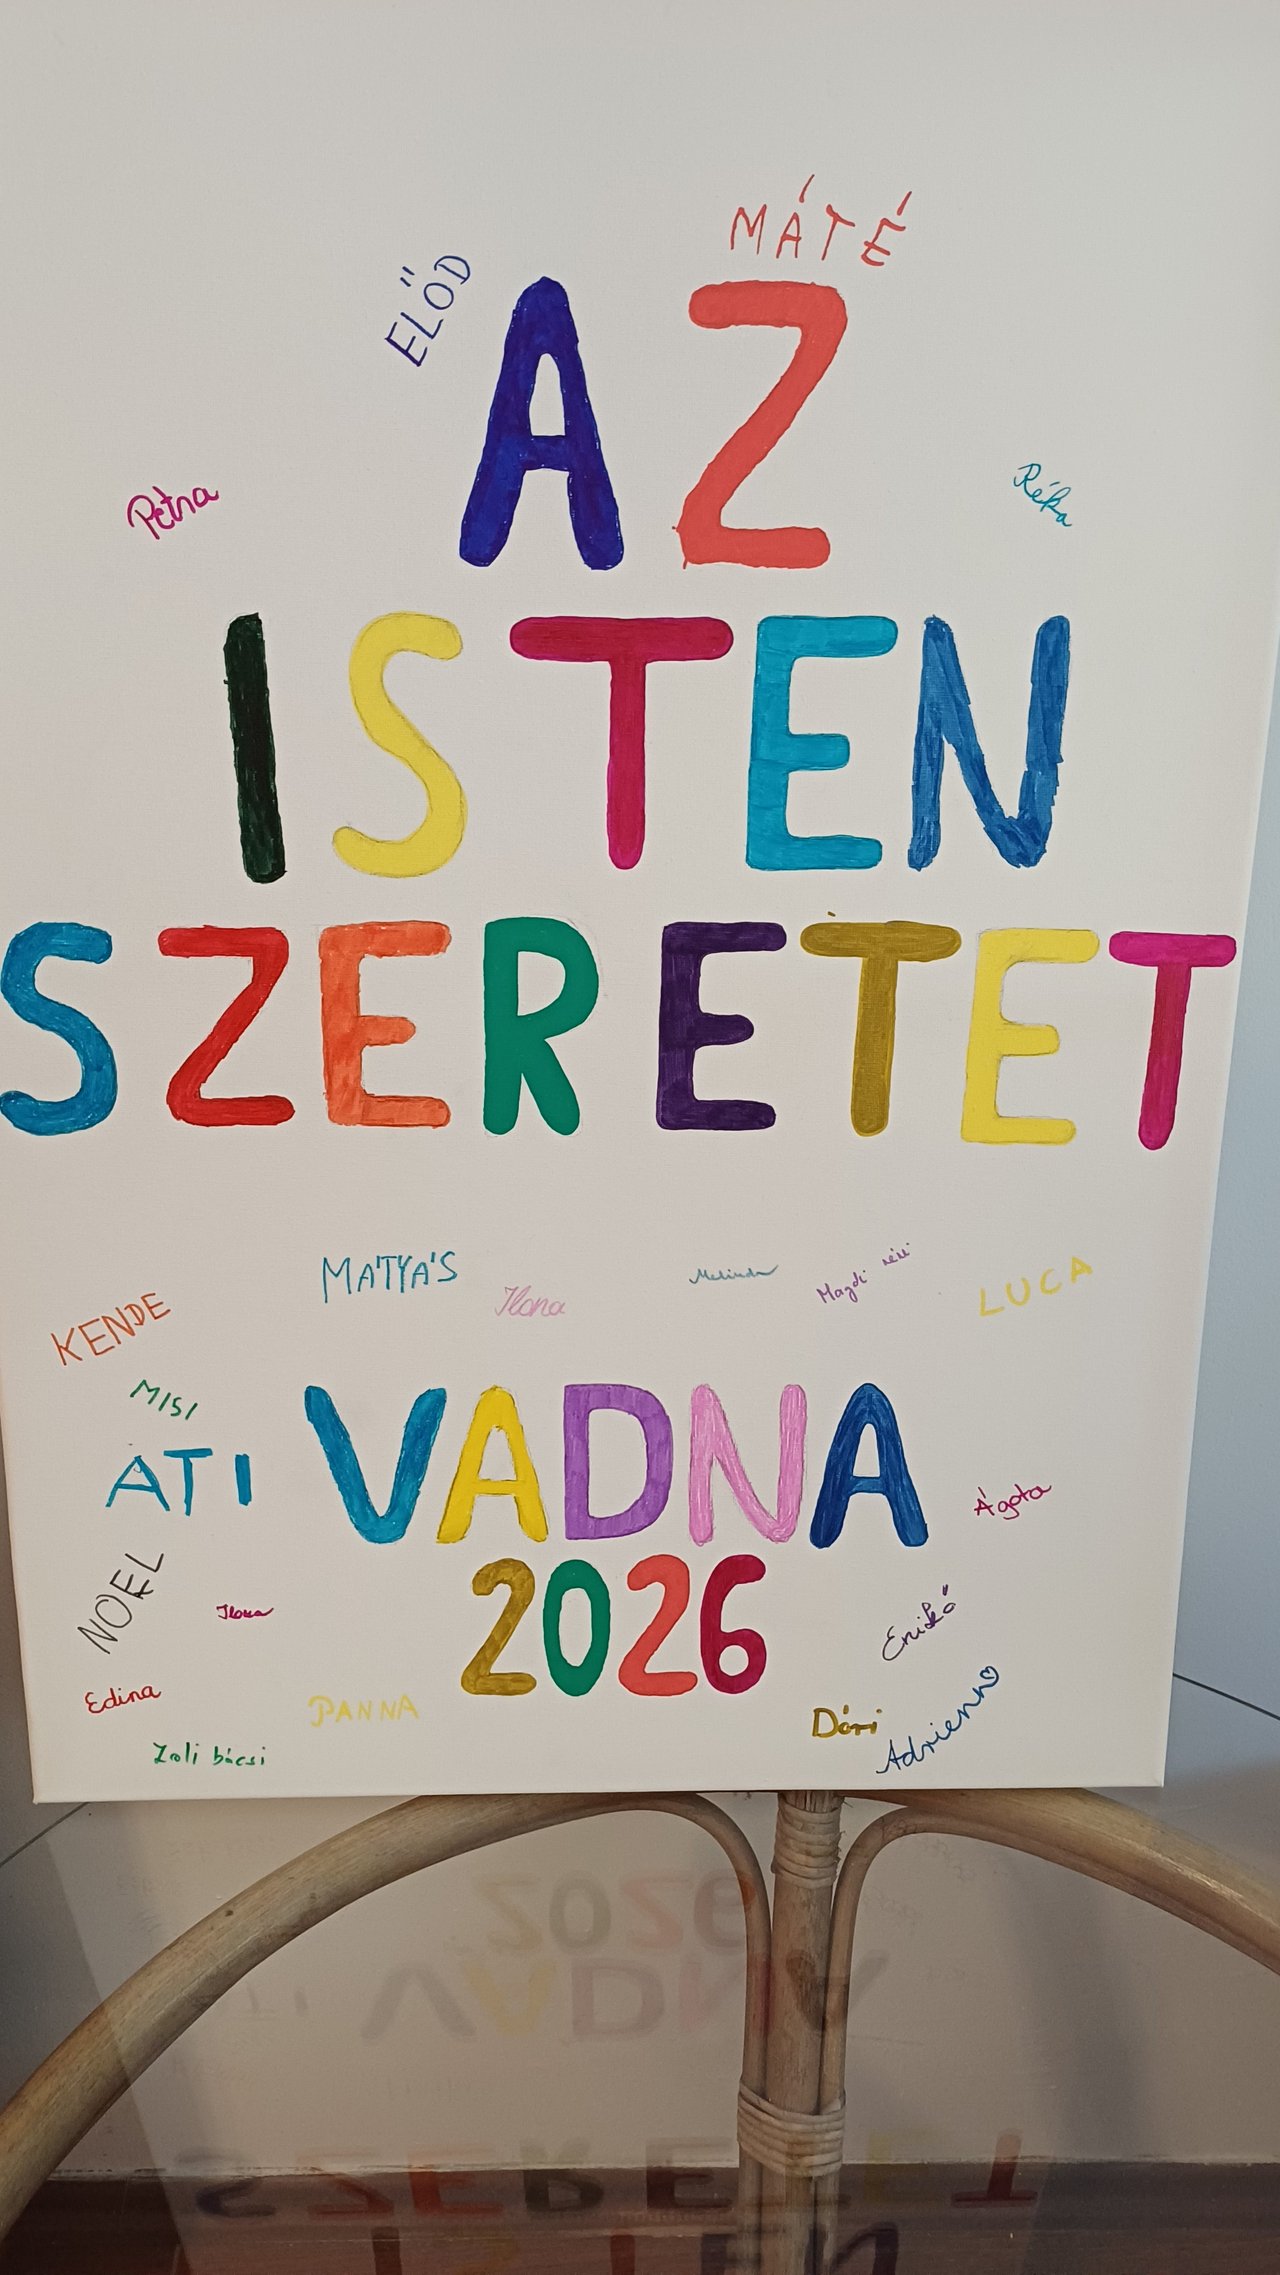 MÁTÉ
ELŐD
AZ
Petra
Réka
ISTEN
SZERETET
MATYÁS
Ilona
Melinda
Magdi néni
LUCA
KENDE
MISI
ATI
VADNA
Ágota
NOEL
Ilona
2026
Enikő
Edina
PANNA
Dóri
Adrienn
Zoli bácsi